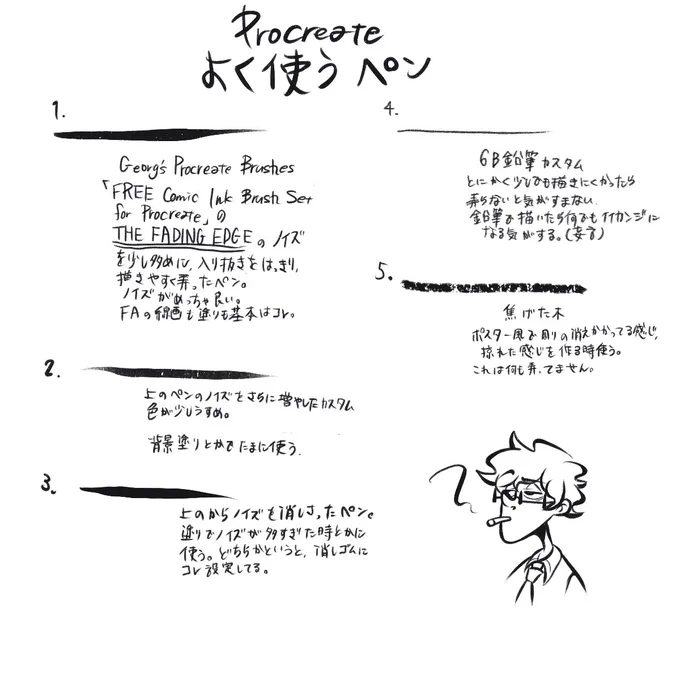 Procreate
よく使う ペン
1.
Georg's Procreate Brushes
「FREE Comic Ink Brush Set
for Procreate」の
THE FADING EDGE の ノイズ
を少し多めに、入り抜きをはっきり、
描きやすく弄ったペン。
ノイズがめっちゃ良い。
FAの線画も塗りも基本はコレ。
2.
上のペンのノイズをさらに増やしたカスタム
色が少しうすめ。
背景塗りとかでたまに使う.
3.
上のからノイズを消しさったペン。
塗りでノイズが多すぎた時とかに
使う。どちらかというと、消しゴムに
コレ設定してる。
4.
6B鉛筆カスタム
とにかく少しでも描きにくかったら
弄らないと気がすまない.
鉛筆で描いたら何でもイイカンジに
なる気がする。(妄言)
5.
焦げた木
ポスター風で周りの消えかかってる感じ,
掠れた感じを作る時使う。
これは何も弄ってません。